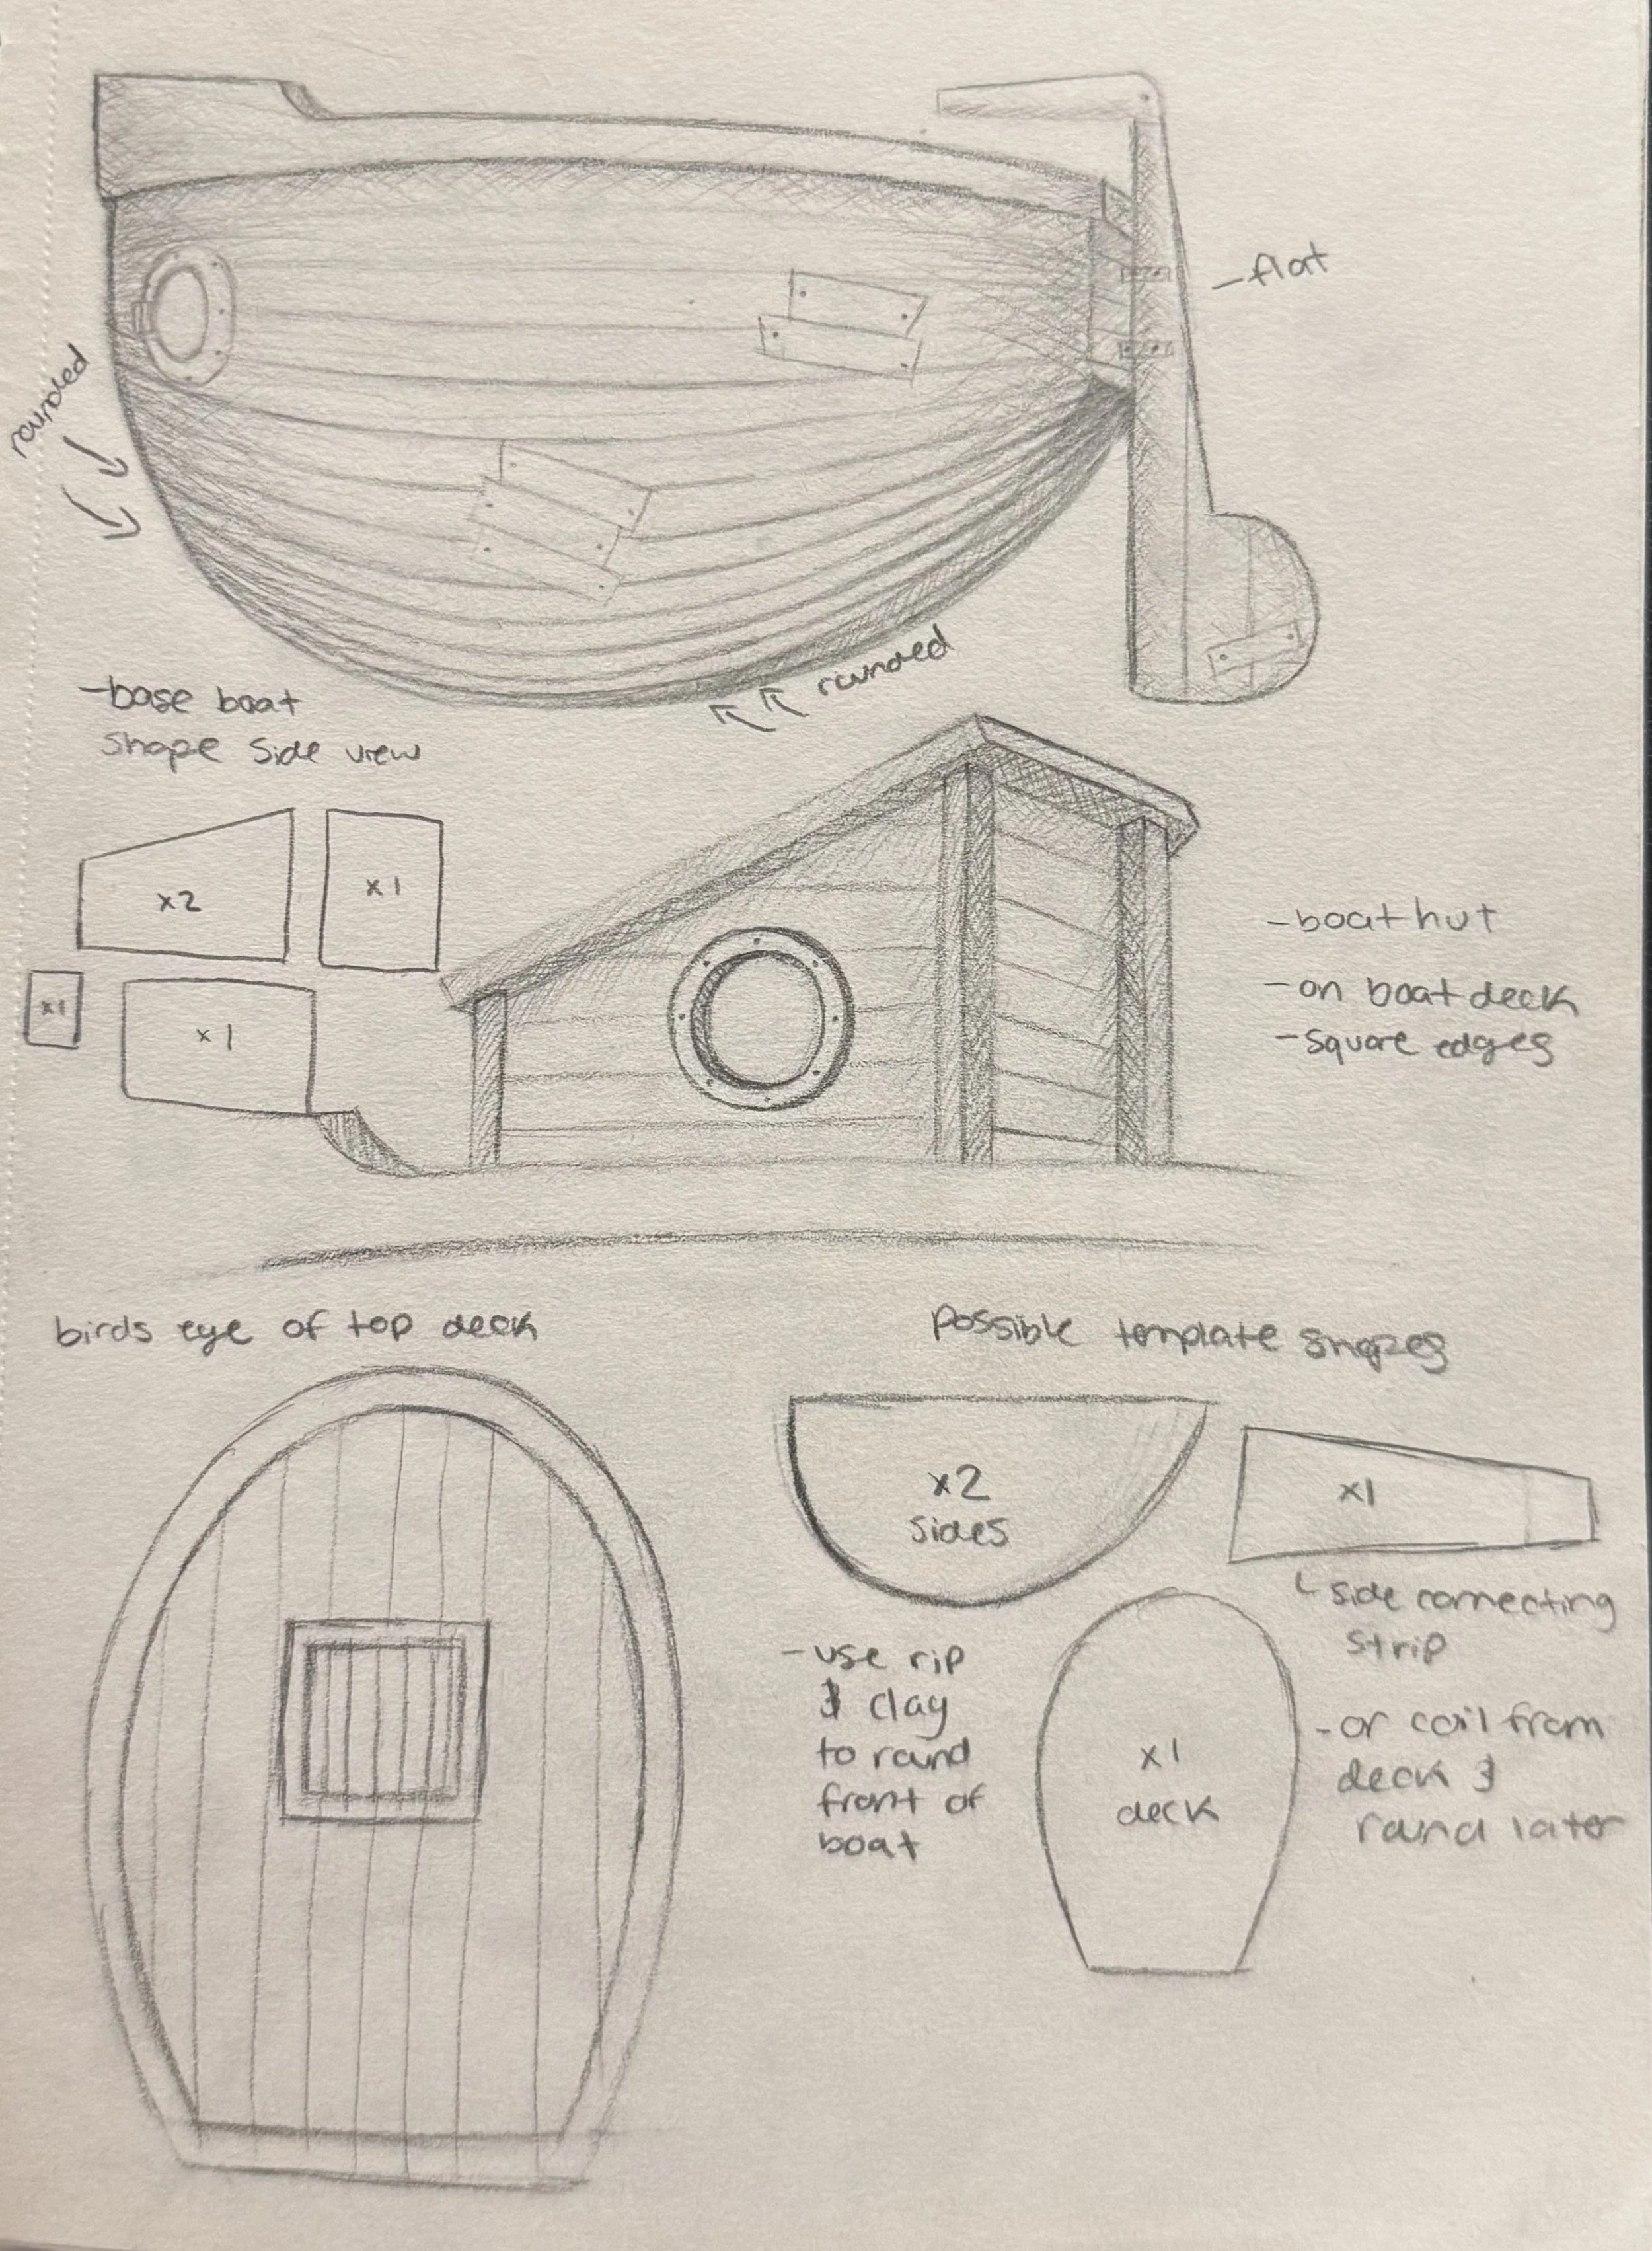 -flat
rounded
rounded
-base boat
shape side view
x2
x1
x1
x1
-boat hut
-on boat deck
-square edges
birds eye of top deck
possible template shapes
x2
sides
x1
side connecting
strip
-use rip
& clay
to round
front of
boat
x1
deck
-or coil from
deck &
round later